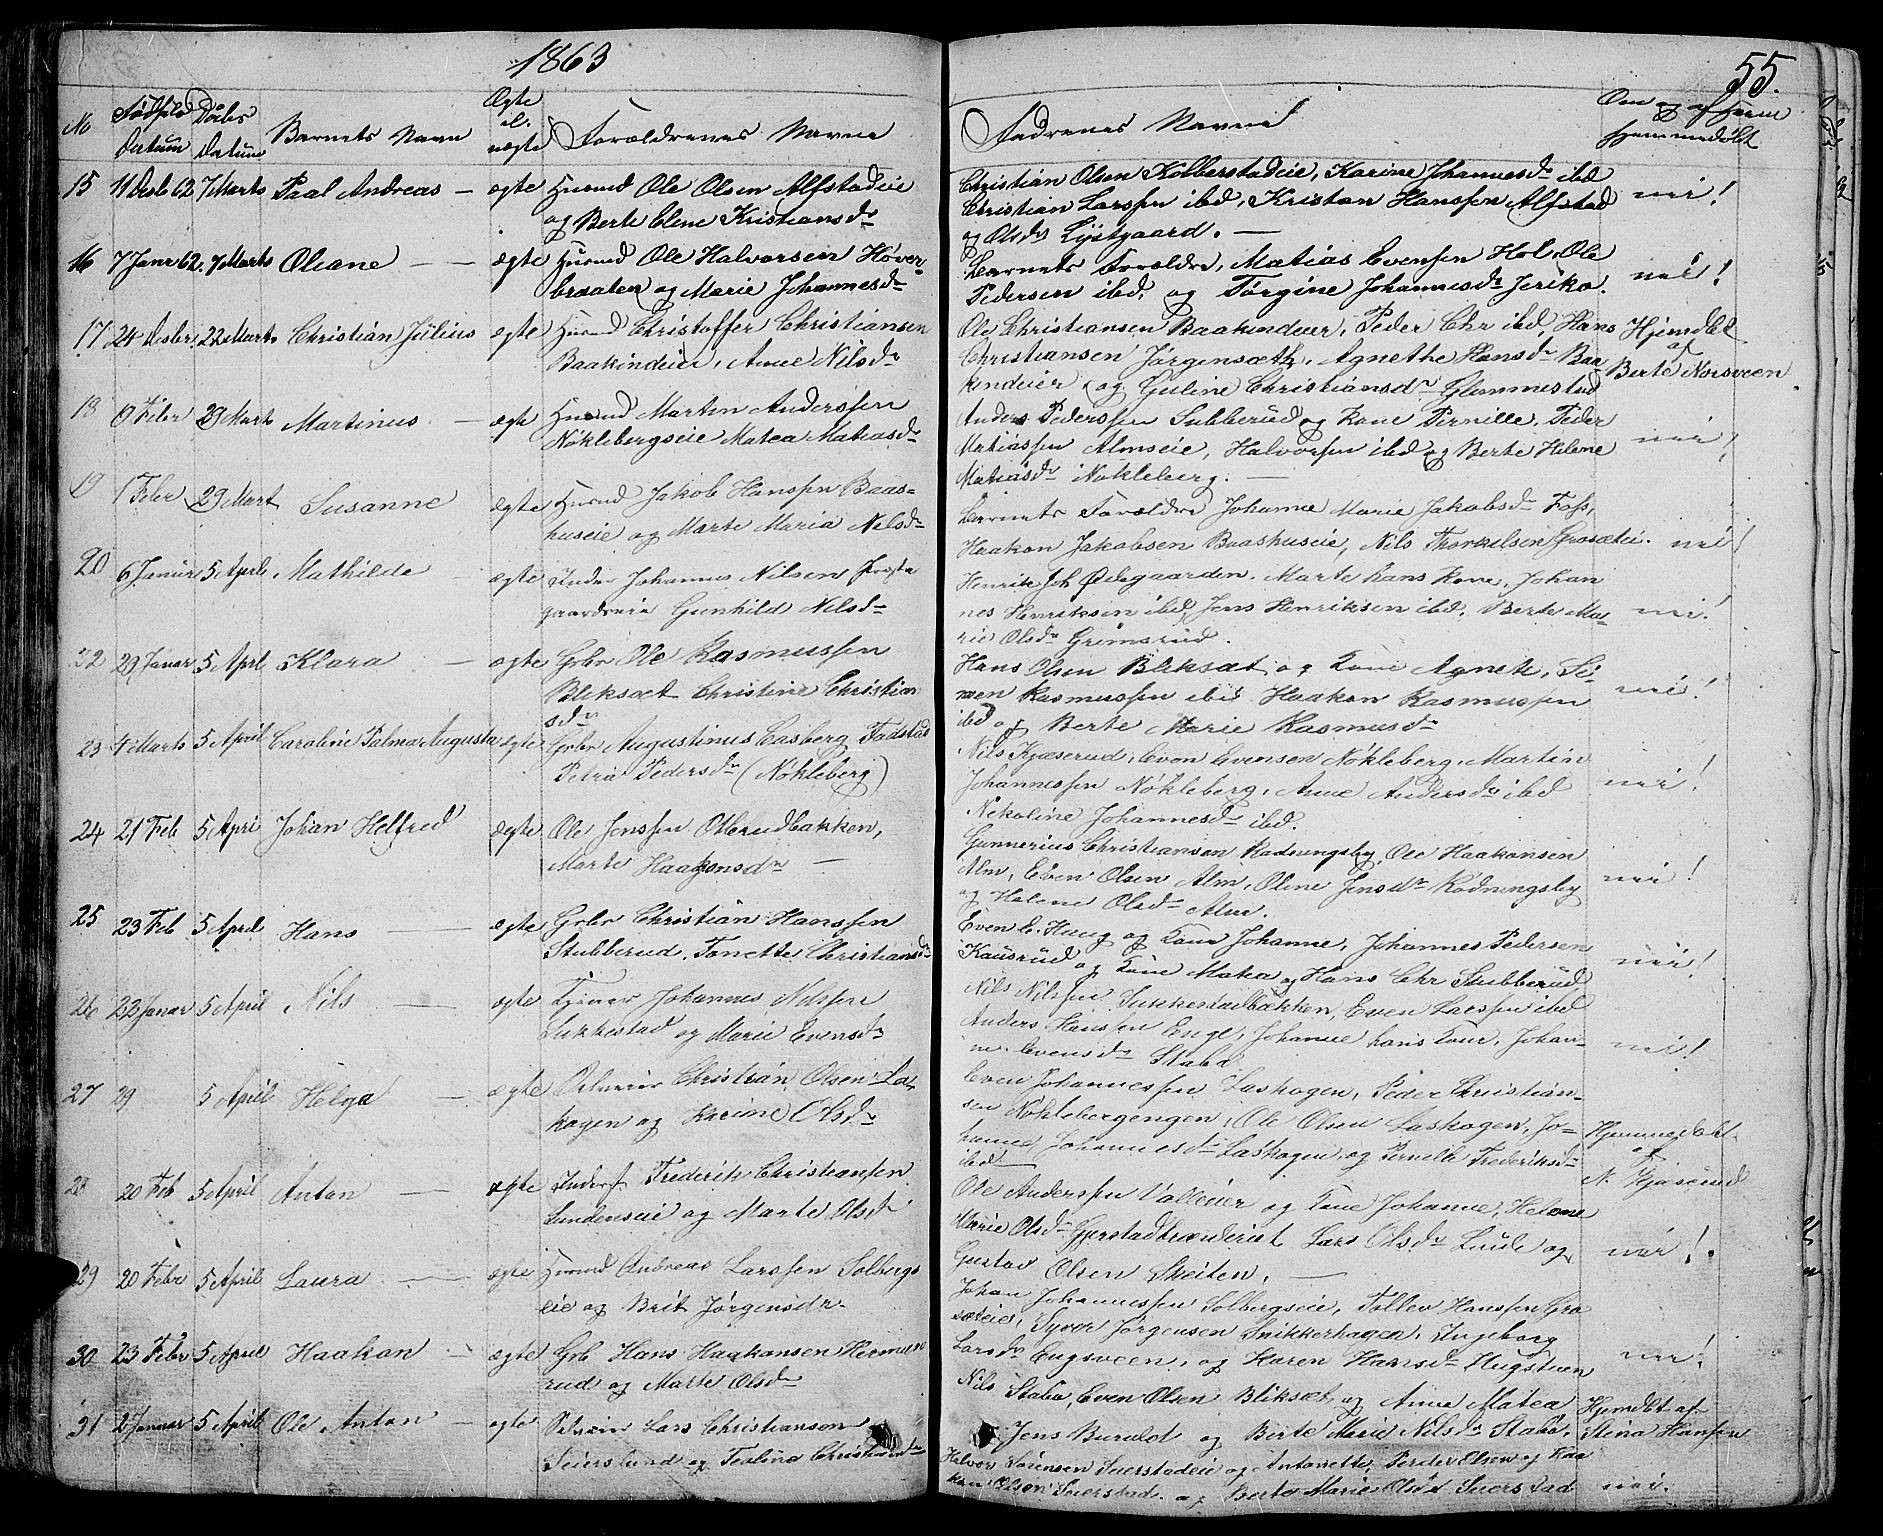 1863
55.
No Fødsels Datum Døbes Datum Barnets Navn Ægte el. uægte Forældrenes Navne Fadrenes Navne Om og af hvem hjemmedøbt
15 11 Desb 62 7 Marts Paal Andreas — ægte Husmd Ole Olsen Alfstadeie
og Berte Elene Kristiansdr
Christian Olsen Kolberstadeie, Karine Johannesdr ibd
Christian Larssen ibd, Kristan Hanssen Alfstad nei!
og Olsdr Lystgaard. —
16 7 Janr 62. 7 Marts Oliane — — ægte Husmd Ole Halvorsen Høver-
braaten og Marie Johannesdr
Barnets Forældre, Matias Evensen Hol, Ole
Pedersen ibd. og Torgine Johannesdr Jeriko. nei!
17 24 Desbr 22 Marts Christian Julius ægte Husmd Christoffer Christiansen
Baakindeier, Anne Nilsdr
Ole Christiansen Baakindeier, Peder Chr ibd, Hans Hjemdbt
Christiansen Jørgensæth, Agnethe Hansdr Baa- af
kindeier og Guline Christiansdr Glemmestad Berte Norsveen
18 9 Feber 29 Marts Martinus — ægte Husmd Martin Anderssen
Nøklebergseie Matea Matiasdr
Anders Pederssen Subberud og Kone Pernille, Peder
Matiassen Almseie, Halvorsen ibd og Berte Helene nei!
Matiasdr Nøkleberg. —
19 1 Feber 29 Mart Susanne ægte Husmd Jakob Hanssen Baas-
huseie og Marte Maria Nilsdr
Barnets Forældre Johanne Marie Jakobsdr Foss,
Haakon Jakobsen Baashuseie, Nils Thorkelsen Grosæteie. nei!
20 6 Januar 5 April Mathilde — ægte Inder Johannes Nilsen Prestegaardseie Gunhild Nilsdr
Henrik Joh Ødegaarden. Marte hans Kone, Johan
nes Henriksen ibd, Jens Henriksen ibd. Berte Ma- nei!
rie Olsdr Grimsrud.
22 29 Januar 5 Aprl Klara — ægte Grbr Ole Rasmussen
Bliksæt Christine Christian
sdr
Hans Olsen Bliksæt og Kone Agnete, Si-
men Rasmussen ibid Haakon Rasmussen nei!
ibd og Berte Marie Rasmusdr
23 4 Marts 5 April Caroline Palma Augusta ægte Grbr Augustinus Casberg Fadstad
Petra Pedersdr (Nøkleberg)
Nils Kjæserud, Even Evensen Nøkleberg, Martin
Johannessen Nøkleberg, Anne Andersdr ibd nei!
Nekoline Johannesdr ibd.
24 21 Feb 5 Apri Johan Helfred ægte Ole Jenssen Ollerudbakken,
Marte Haakonsdr —
Gunnerius Christiansen Radningsby, Ole Haakonsen
Alm, Even Olsen Alm, Oline Jensdr Rødningsby nei!
og Helene Olsdr Alm.
25 23 Feb 5 April Hans — ægte Grbr Christian Hanssen
Stubberud. Tonette Christiansdr
Even E. Haug og Kone Johanne, Johannes Pedersen
Kausrud og Kone Matea og Hans Chr Stubberud nei!
26 22 Januar 5 April Nils — ægte Ejner Johannes Nilssen
Sukkestad og Marie Evensdr
Nils Nilssen Sukkestadbakken, Even Larssen ibd
Anders Hanssen Enge, Johanne hans Kone, Johan-
ne Evensdr Stabo nei!
27 29 5 April Helga — ægte Selveier Christian Olsen La-
kogen og Karine Olsdr
Even Johannessen Laskogen, Peder Christian-
sen Nøklebergengen, Ole Olsen Laskogen, Jo- Hjemmedøbt
hanne Johannesdr Laskogen og Pernille Frederiksdr af
ibd N. Kjæserud
28 20 Feb 5 April Anton — ægte Inders Frederik Christiansen
Sunderseie og Marte Olsdr
Ole Anderssen Valleier og Kone Johanne, Helene
Marie Olsdr Gjerstadtrænderiet Lars Olsdr Lunde og nei!.
Gustav Olsen Skeiten. —
29 20 Febr 5 April Laura — ægte Husmd Andreas Larssen Solbergs
eie og Brit Jørgensdr.
Johan Johannessen Solbergseie, Tollev Hanssen Gro
sæteie, Syver Jørgensen Snikkerhagen, Ingeborg
Larsdr Engsveen, og Karen Hansdr Hugstuen nei!
30 23 Febr 5 April Haakon — ægte Grb Hans Haakonsen Hermen
rud og Marte Olsdr
Nils Stabo, Even Olsen Bliksæt og Anne Matea Hjemdbt af
Jens Buruld og Berte Marie Nilsdr Stabo, Stina Hansen
31 2 Januar 5 April Ole Anton — ægte Selveier Lars Christiansen
Seierslund og Teoline Christiansdr
Halvor Sørensen Seierstadeie og Antonette, Peder Olsen og Haa
kon Olsen Seierstad. og Berte Marie Olsdr Seierstad nei.